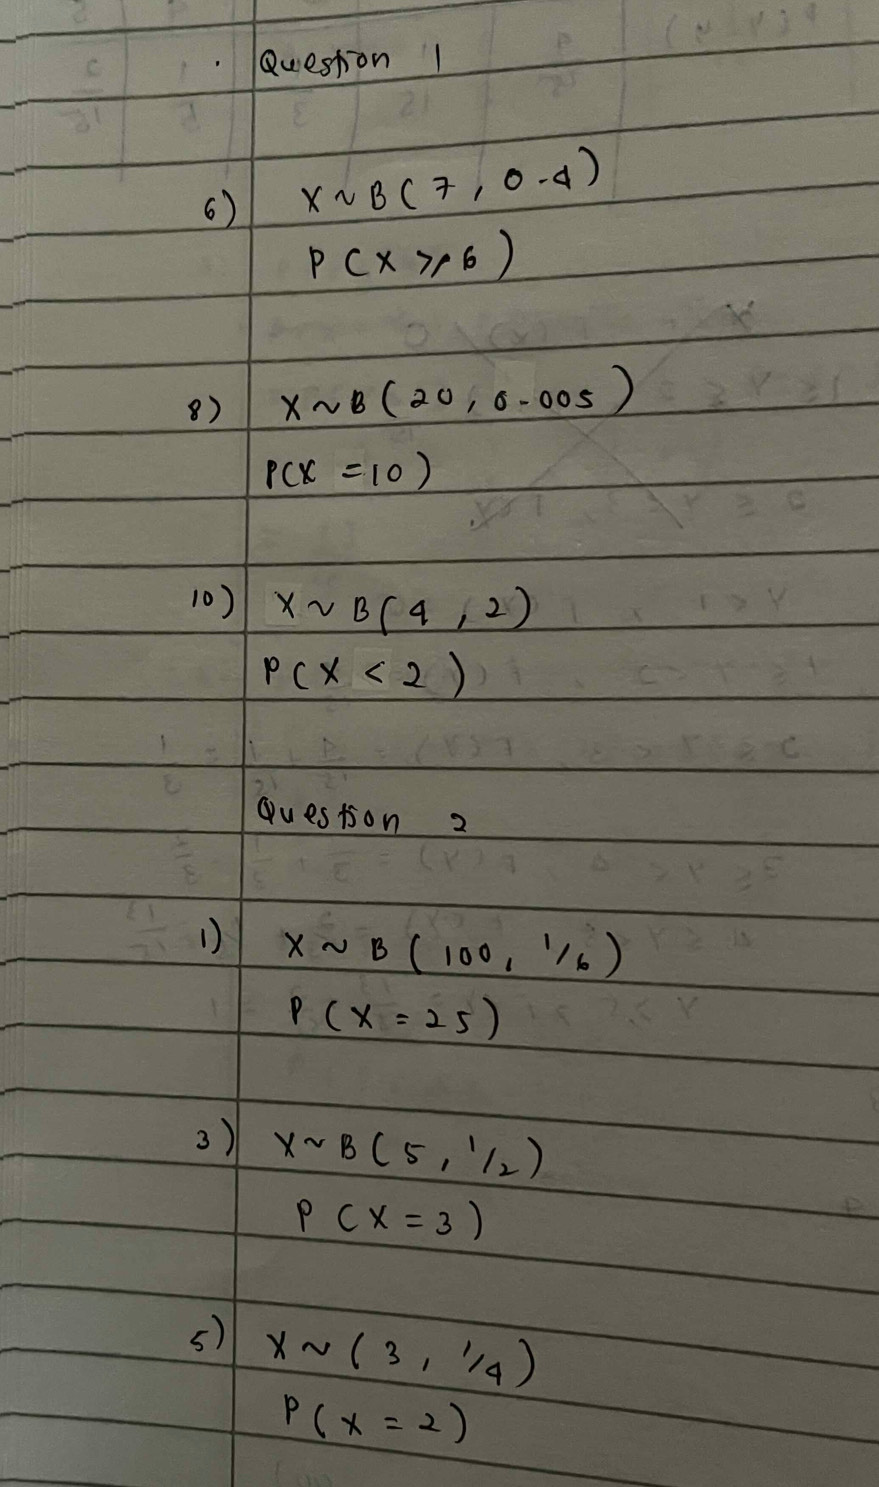 Question 1
6) X ~ B(7, 0.4)
P(X ≥ 6)
8) X ~ B(20, 0.005)
P(X = 10)
10) X ~ B(4, 2)
P(X < 2)
Question 2
1) X ~ B(100, 1/6)
P(X = 25)
3) X ~ B(5, 1/2)
P(X = 3)
5) X ~ (3, 1/4)
P(X = 2)